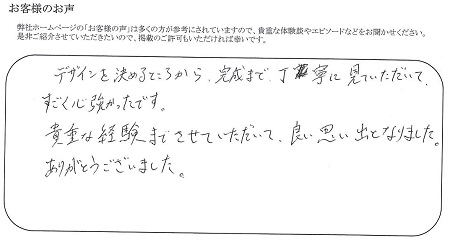 お客様のお声
弊社ホームページの「お客様の声」は多くの方が参考にされていますので、貴重な体験談やエピソードなどをお聞かせください。
是非ご紹介させていただきたいので、掲載のご許可もいただければ幸いです。
デザインを決めるところから、完成まで、丁寧に見ていただいて、
すごく心強かったです。
貴重な経験までさせていただいて、良い思い出となりました。
ありがとうございました。